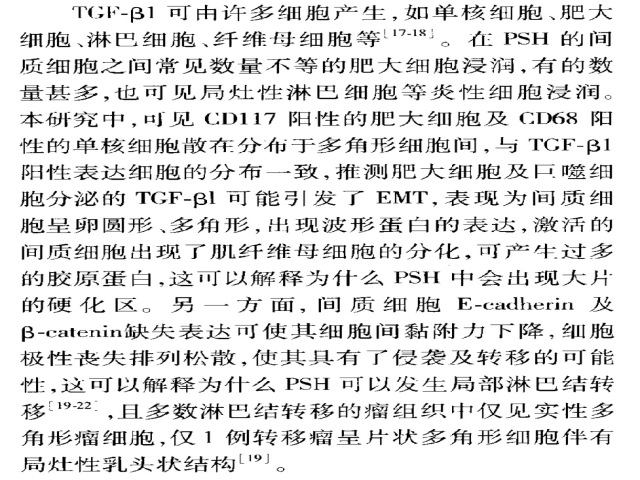 TGF-β1 可由许多细胞产生,如单核细胞、肥大
细胞、淋巴细胞、纤维母细胞等[17-18]。在 PSH 的间
质细胞之间常见数量不等的肥大细胞浸润,有的数
量甚多,也可见局灶性淋巴细胞等炎性细胞浸润。
本研究中,可见 CD117 阳性的肥大细胞及 CD68 阳
性的单核细胞散在分布于多角形细胞间,与 TGF-β1
阳性表达细胞的分布一致,推测肥大细胞及巨噬细
胞分泌的 TGF-βl 可能引发了 EMT,表现为间质细
胞呈卵圆形、多角形,出现波形蛋白的表达,激活的
间质细胞出现了肌纤维母细胞的分化,可产生过多
的胶原蛋白,这可以解释为什么 PSH 中会出现大片
的硬化区。另一方面,间质细胞 E-cadherin 及
β-catenin缺失表达可使其细胞间黏附力下降,细胞
极性丧失排列松散,使其具有了侵袭及转移的可能
性,这可以解释为什么 PSH 可以发生局部淋巴结转
移[19-22],且多数淋巴结转移的瘤组织中仅见实性多
角形瘤细胞,仅 1 例转移瘤呈片状多角形细胞伴有
局灶性乳头状结构[19]。